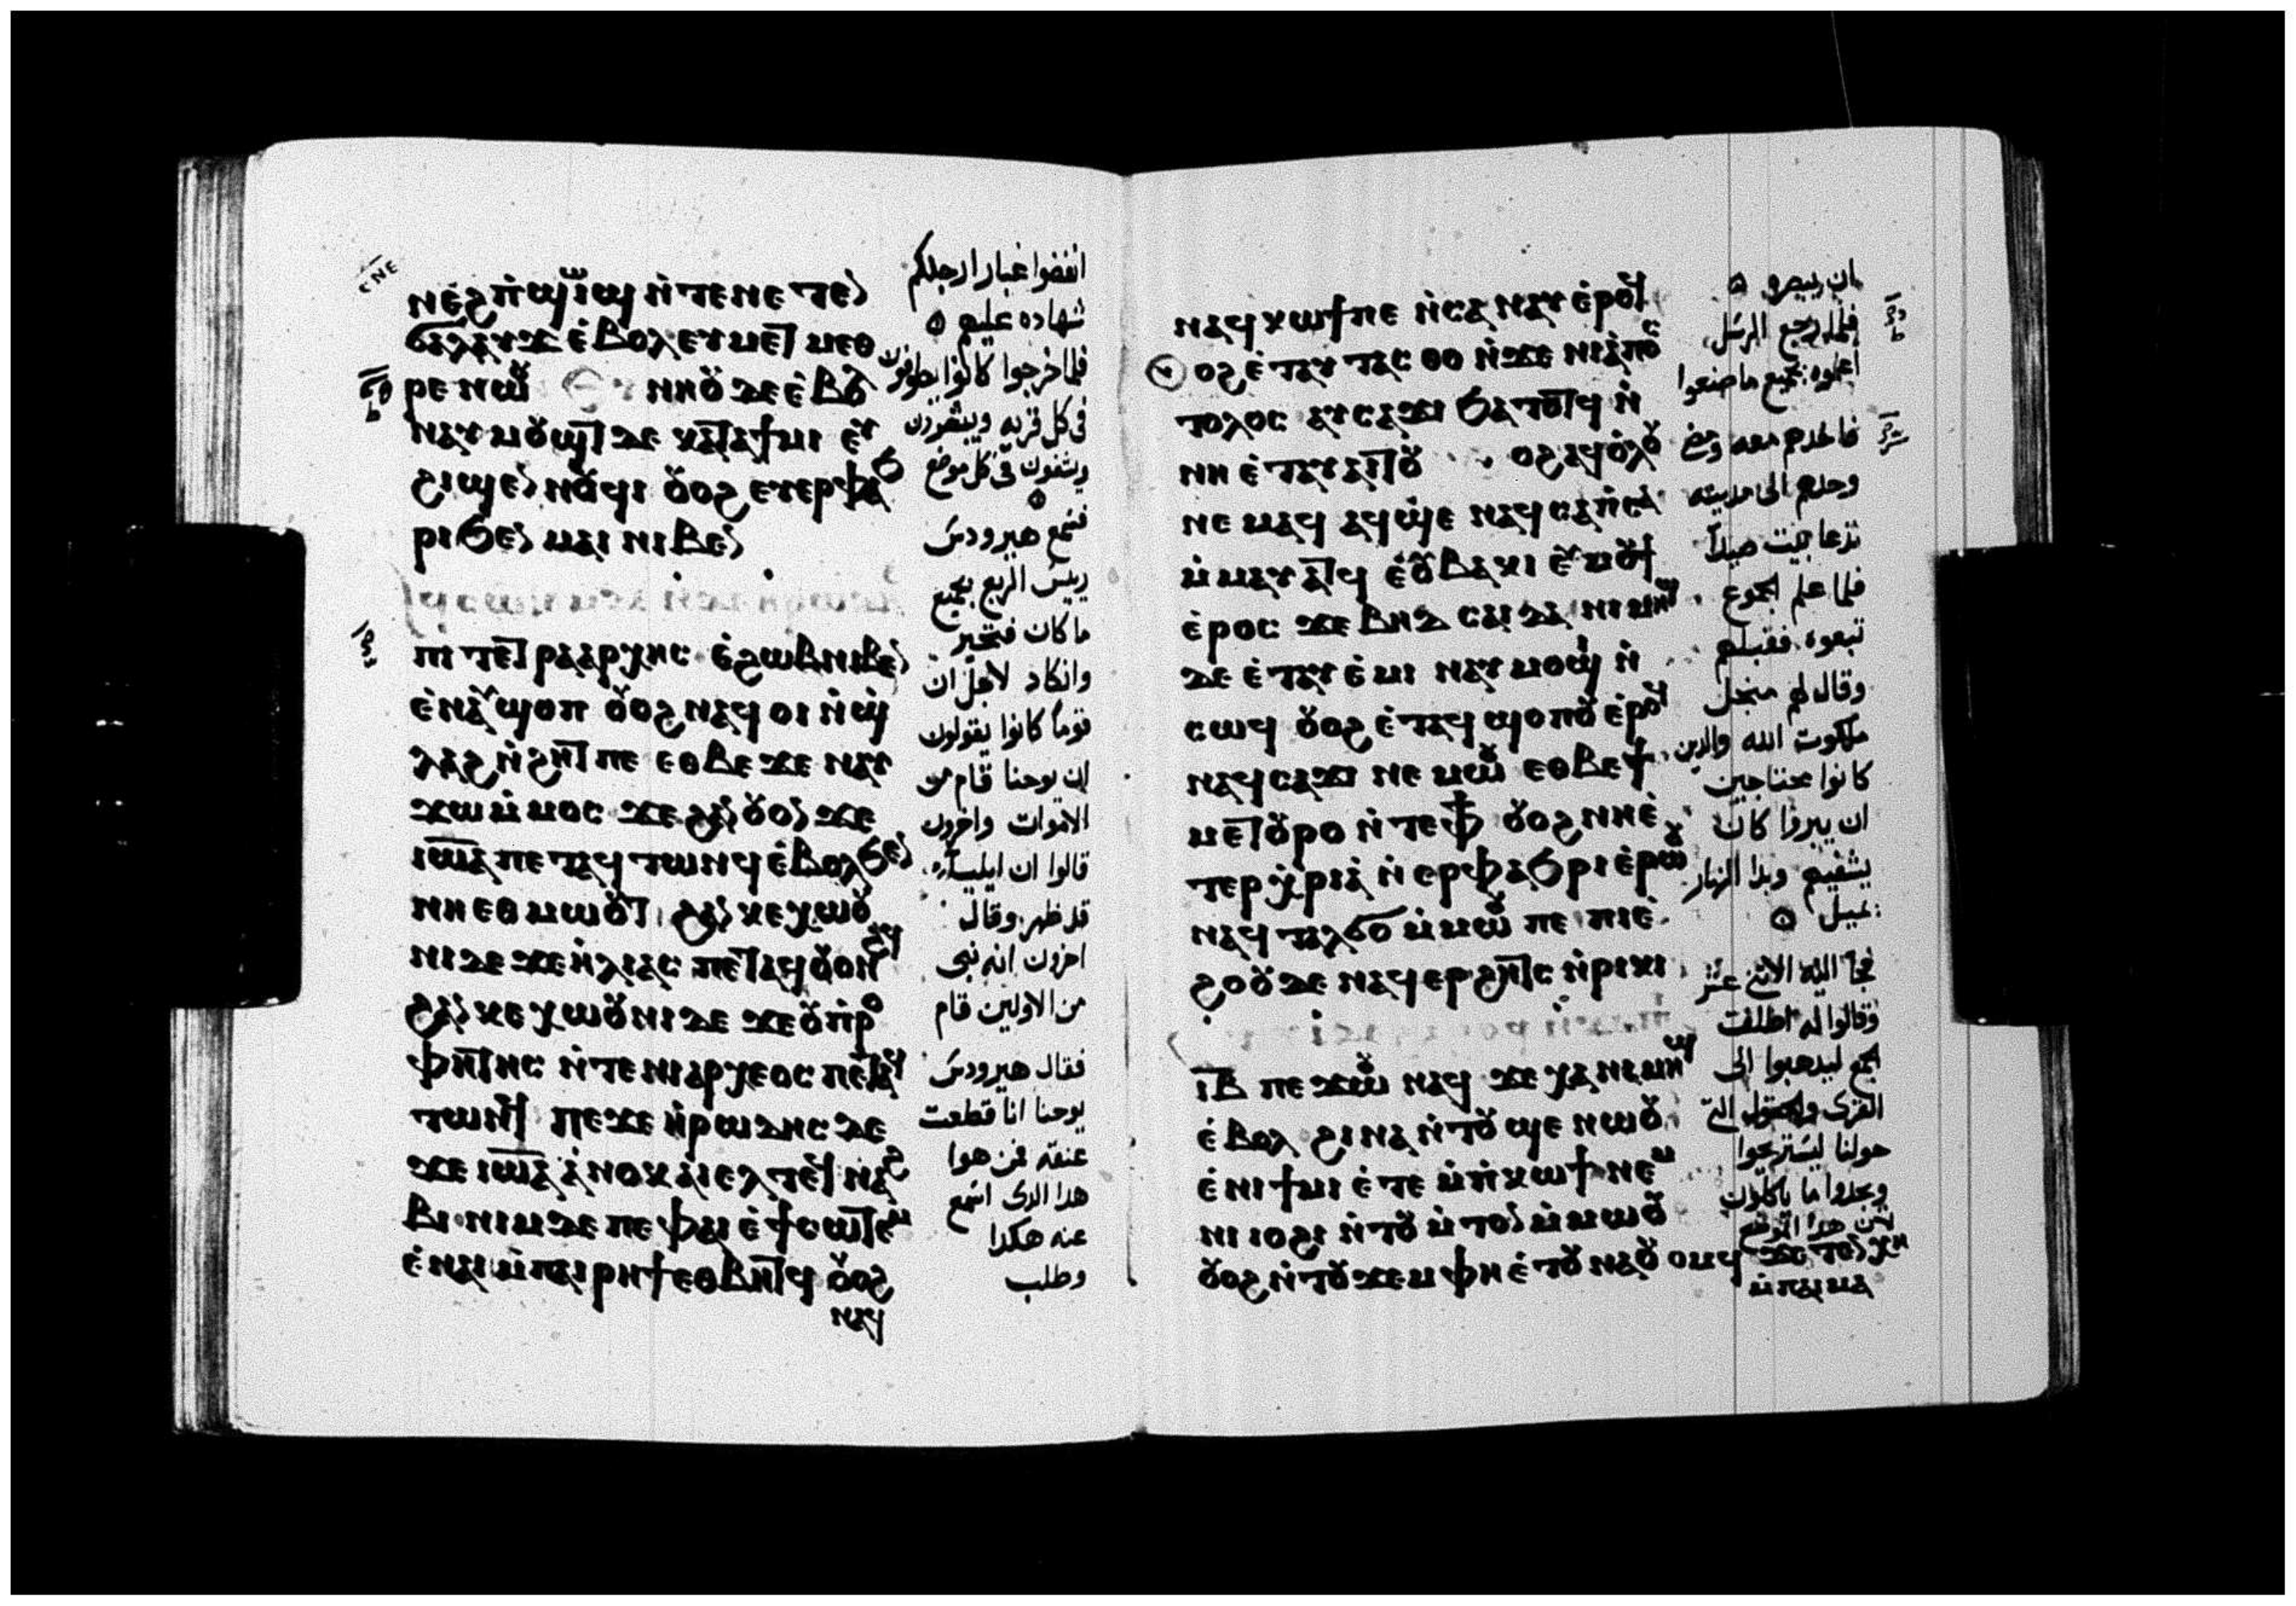 ⲥⲛⲉ
ⲛⲉϩⲡ̀ϣⲱⲓϣ ⲛ̀ⲧⲉⲛⲉⲧⲉⲛ
ϭⲁⲗⲁⲩϫ ⲉ̀ⲃⲟⲗ ⲉⲩⲙⲉⲧⲙⲉⲑ
ⲣⲉ ⲛⲱⲟⲩ ⲛⲏⲟⲩ ⲇⲉ ⲉ̀ⲃⲟⲗ
ⲛⲁⲩⲙⲟⲩϣⲧ ⲇⲉ ⲕⲁⲧⲁϯⲙⲓ ⲉⲩ
ϩⲓϣⲉⲛⲛⲟⲩϥⲓ ⲟⲩⲟϩ ⲉⲩⲉⲣⲫⲁϧ
ⲣⲓ ϧⲉⲛ ⲙⲁⲓ ⲛⲓⲃⲉⲛ
ⲡⲓⲧⲉⲧⲣⲁⲁⲣⲭⲏⲥ ⲉ̀ϩⲱⲃ ⲛⲓⲃⲉⲛ
ⲉ̀ⲛⲁⲩϣⲟⲡ ⲟⲩⲟϩ ⲛⲁϥⲟⲓ ⲛ̀ϣ̀
ⲗⲁϩ ⲛ̀ϩⲏⲧ ⲡⲉ ⲉⲑⲃⲉ ϫⲉ ⲛⲁⲩ
ϫⲱ ⲙ̀ⲙⲟⲥ ϫⲉ ϩⲁⲛⲟⲩⲟⲛ ϫⲉ
ⲓⲱⲁ ⲡⲉⲧⲁϥⲧⲱⲛϥ ⲉ̀ⲃⲟⲗϧⲉⲛ
ⲛⲏⲉⲑⲙⲱⲟⲩⲧ ϩⲁⲛⲕⲉⲭⲱⲟⲩ
ⲛⲓ ⲇⲉ ϫⲉ ⲏ̀ⲗⲓⲁⲥ ⲡⲉⲧⲁϥⲟⲩⲟⲛϩϥ
ϩⲁⲛⲕⲉⲭⲱⲟⲩⲛⲓ ⲇⲉ ϫⲉ ⲟⲩⲡ̀ⲣⲟ
ⲫⲏⲧⲏⲥ ⲛ̀ⲧⲉ ⲛⲓⲁⲣⲭⲉⲟⲥ ⲡⲉⲧⲁϥ
ⲧⲱⲛϥ ⲡⲉϫⲉ ⲏ̀ⲣⲱⲇⲏⲥ ⲇⲉ
ϫⲉ ⲓⲱⲁ ⲁ̀ⲛⲟⲕ ⲁⲓⲉⲗ ⲧⲉϥⲛⲁϩ
ⲃⲓ ⲛⲓⲙ ⲇⲉ ⲡⲉ ⲫⲁⲓ ⲉ̀ϯⲥⲱⲧⲉⲙ
ⲉ̀ⲛⲁⲓ ⲙ̀ⲡⲁⲓⲣⲏϯ ⲉⲑⲃⲏⲧϥ ⲟⲩⲟϩ
ⲛⲁϥ
انفضوا غبار ارجلكم
شهاده عليهم
فلما خرجوا كانوا يطوفون
فى كل قريه ويبشرون
ويشفون فى كل موضع
فسمع هيرودس
رييس الربع بجميع
ما كان فتحير
وانكاد لاجل ان
قوما كانوا يقولون
ان يوحنا قام من
الاموات واخرون
قالوا ان ايليا
قد ظهر وقال
اخرون انه نبى
من الاولين قام
فقال هيرودس
يوحنا انا قطعت
عنقه فمن هوا
هدا الدى اسمع
عنه هكدا
وطلب
ⲛⲁϥⲕⲱϯ ⲡⲉ ⲛ̀ⲥⲁ ⲛⲁⲩ ⲉ̀ⲣⲟϥ
ⲟϩ ⲉ̀ⲧⲁⲩⲧⲁⲥⲑⲟ ⲛ̀ϫⲉ ⲛⲓⲁ̀ⲡⲟⲥ
ⲧⲟⲗⲟⲥ ⲁⲩⲥⲁϫⲓ ϧⲁⲧⲟⲧϥ ⲛ̀
ⲛⲏ ⲉ̀ⲧⲁⲩⲁⲓⲧⲟⲩ ⲟϩ ⲁϥⲟ̀ⲗⲟⲩ
ⲛⲉⲙⲁϥ ⲁϥϣⲉ ⲛⲁϥ ⲥⲁⲡ̀ⲥⲁ
ⲙ̀ⲙⲁⲩⲁⲧϥ ⲉ̀ⲟⲩⲃⲁⲕⲓ ⲉⲩⲙⲟⲩϯ
ⲉ̀ⲣⲟⲥ ϫⲉ ⲃⲏⲇⲥⲁⲓⲇⲁ ⲛⲓⲙⲏϣ
ⲇⲉ ⲉ̀ⲧⲁⲩⲉ̀ⲙⲓ ⲛⲁⲩⲙⲟϣⲓ ⲛ̀
ⲥⲱϥ ⲟⲩⲟϩ ⲉ̀ⲧⲁϥϣⲟⲡⲟⲩ ⲉ̀ⲣⲟϥ
ⲛⲁϥⲥⲁϫⲓ ⲛⲉⲙⲱⲟⲩ ⲉⲑⲃⲉϯ
ⲙⲉⲧⲟⲩⲣⲟ ⲛ̀ⲧⲉⲫϯ ⲟⲩⲟϩ ⲛⲏⲉ̀
ⲧⲉⲣⲭ̀ⲣⲓⲁ ⲛ̀ⲉⲣⲫⲁϧⲣⲓ ⲉ̀ⲣⲱⲟⲩ
ⲛⲁϥⲧⲁⲗϭⲟ ⲙ̀ⲙⲱⲟⲩ ⲡⲉ ⲡⲓⲉ̀
ϩⲟⲟⲩ ⲇⲉ ⲛⲁϥⲉⲣϩⲏⲧⲥ ⲛ̀ⲣⲓⲕⲓ
ⲓⲃ ⲡⲉϫⲱⲟⲩ ⲛⲁϥ ϫⲉ ⲭⲁ ⲛⲓⲙⲏϣ
ⲉ̀ⲃⲟⲗ ϩⲓⲛⲁ ⲛ̀ⲧⲟⲩϣⲉ ⲛⲱⲟⲩ
ⲉ̀ⲛⲓϯⲙⲓ ⲉ̀ⲧⲉ ⲙ̀ⲡ̀ⲕⲱϯ ⲛⲉⲙ
ⲛⲓⲓⲟϩⲓ ⲛ̀ⲧⲟⲩⲙ̀ⲧⲟⲛ ⲙ̀ⲙⲱⲟⲩ
ⲟⲩⲟϩ ⲛ̀ⲧⲟⲩϫⲉⲙ ⲫⲏ ⲉ̀ⲧⲟⲩⲛⲁⲟⲩⲟⲙϥ ϫⲉ ⲧⲉⲛⲭⲏ
ⲙ̀ⲡⲁⲓⲙⲁ
ان يبصره
فلما رجع الرسل
اعلموه بجميع ما صنعوا
فاخدهم معه ومضى
وحدهم الى مدينه
تدعا بيت صيدا
فلما علم الجموع
تبعوه فقبلهم
وقال لهم من اجل
ملكوت الله والدين
كانوا محتاجين
ان يبروا كان
يشفيهم وبدا النهار
يميل
فجا اليه الاثنى عشر
وقالوا له اطلقت
الجمع ليدهبوا الى
القرى والحقول التى
حولنا ليستريحوا
ويجدوا ما ياكلون